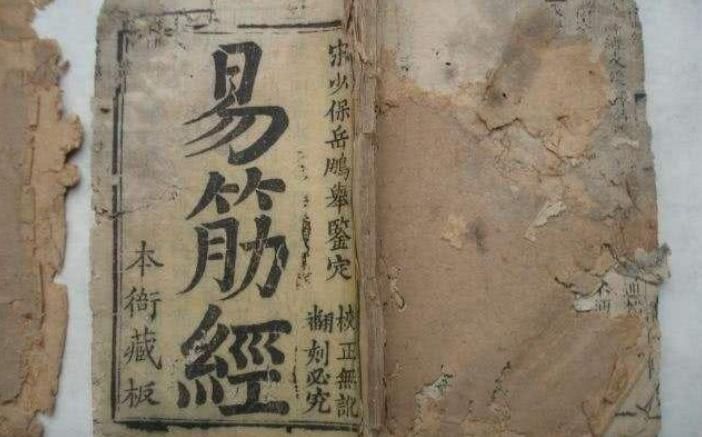 宋少保岳鵬舉鑒定
校正無訛
翻刻必究
易筋經
本衙藏板